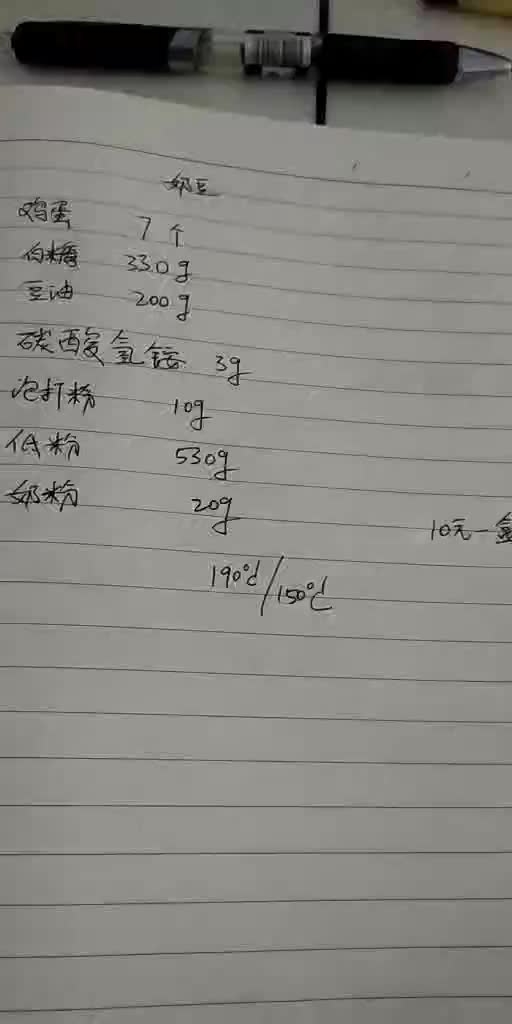 奶豆
鸡蛋 7个
白糖 330g
豆油 200g
碳酸氢铵 3g
泡打粉 10g
低粉 530g
奶粉 20g
10元一盒
190℃/150℃